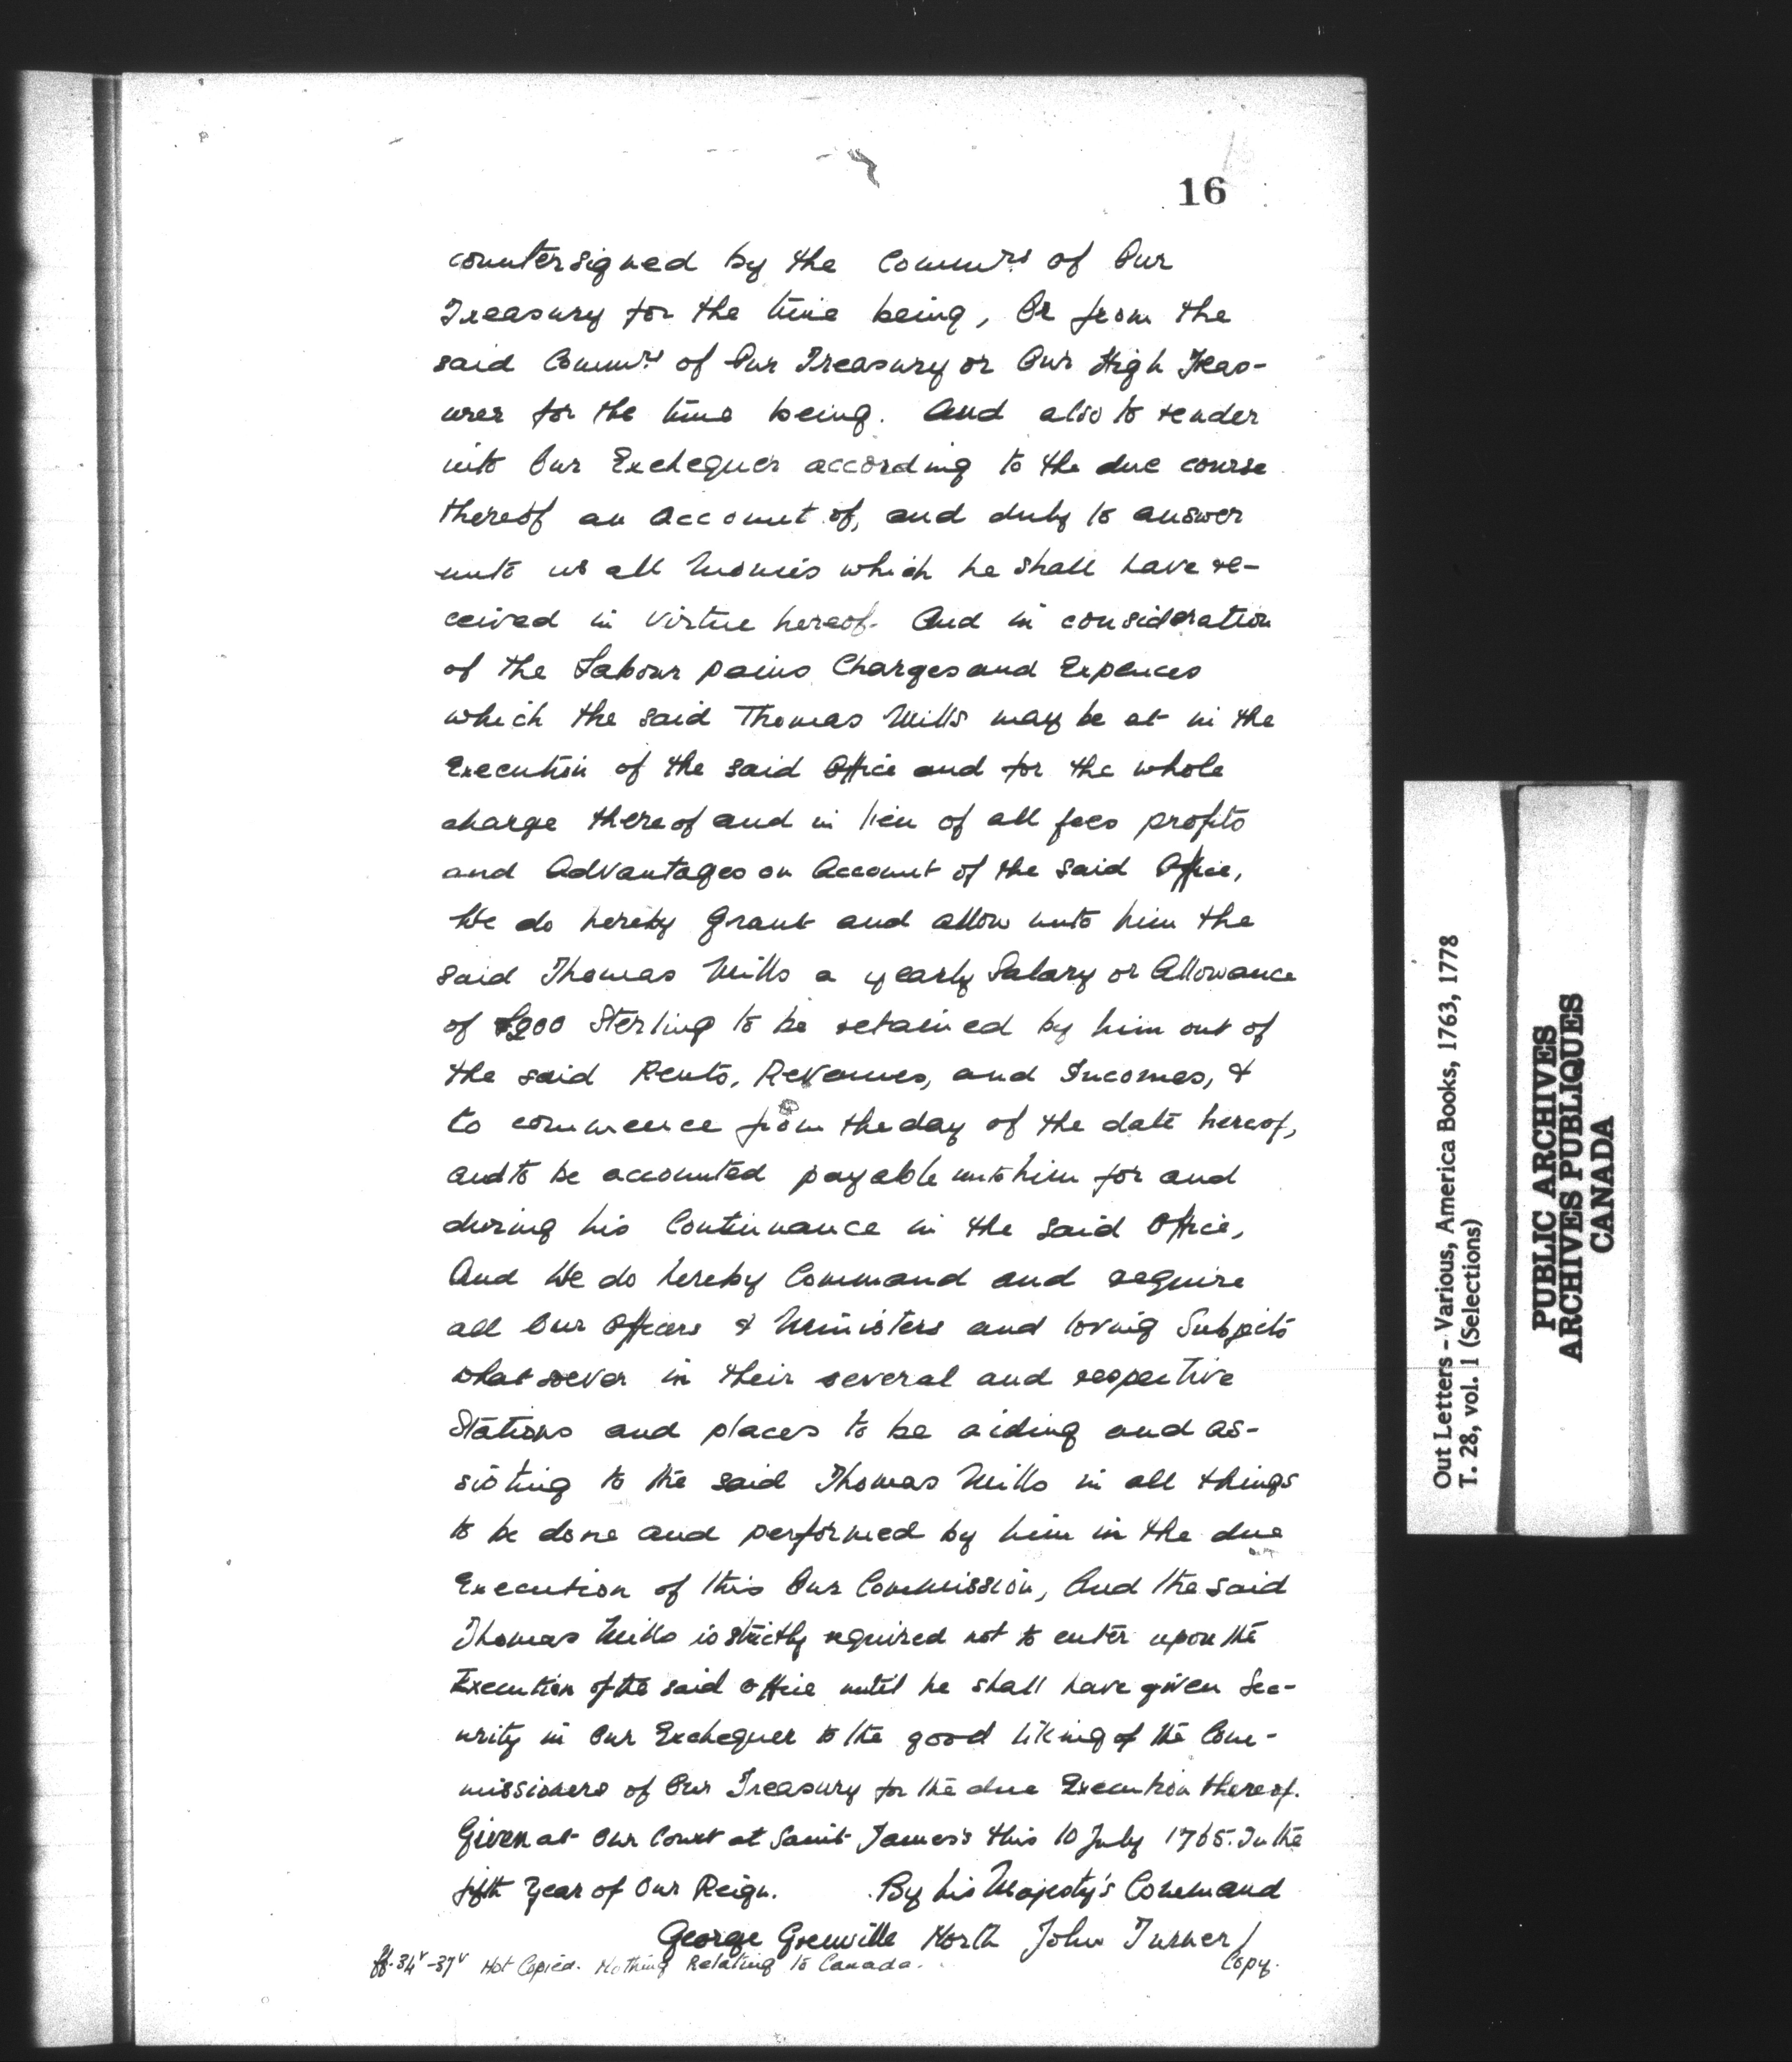 16
countersigned by the Commrs of Our
Treasury for the time being, Or from the
said Commrs of Our Treasury or Our High Treas-
urer for the time being. And also to render
into Our Exchequer according to the due course
thereof an Account of, and duly to answer
unto us all Monies which he shall have re-
ceived in virtue hereof. And in consideration
of the Labour pains Charges and Expences
which the said Thomas Mills may be at in the
Execution of the said Office and for the whole
charge thereof and in lieu of all fees profits
and Advantages on Account of the said Office,
We do hereby Grant and allow unto him the
said Thomas Mills a yearly Salary or Allowance
of £200 Sterling to be retained by him out of
the said Rents, Revenues, and Incomes, &
to commence from the day of the date hereof,
and to be accounted payable unto him for and
during his Continuance in the said Office,
And We do hereby Command and require
all Our Officers & Ministers and loving Subjects
whatsoever in their several and respective
Stations and places to be aiding and as-
sisting to the said Thomas Mills in all things
to be done and performed by him in the due
Execution of this Our Commission, And the said
Thomas Mills is strictly required not to enter upon the
Execution of the said Office until he shall have given Sec-
urity in Our Exchequer to the good liking of the Com-
missioners of Our Treasury for the due Execution thereof.
Given at Our Court at Saint James's this 10 July 1765. In the
fifth Year of Our Reign. By his Majesty's Command
George Grenville North John Turner/
ff. 34v-37v Not Copied. Nothing Relating to Canada. Copy.
Out Letters - Various, America Books, 1763, 1778
T. 28, vol. 1 (Selections)
PUBLIC ARCHIVES
ARCHIVES PUBLIQUES
CANADA